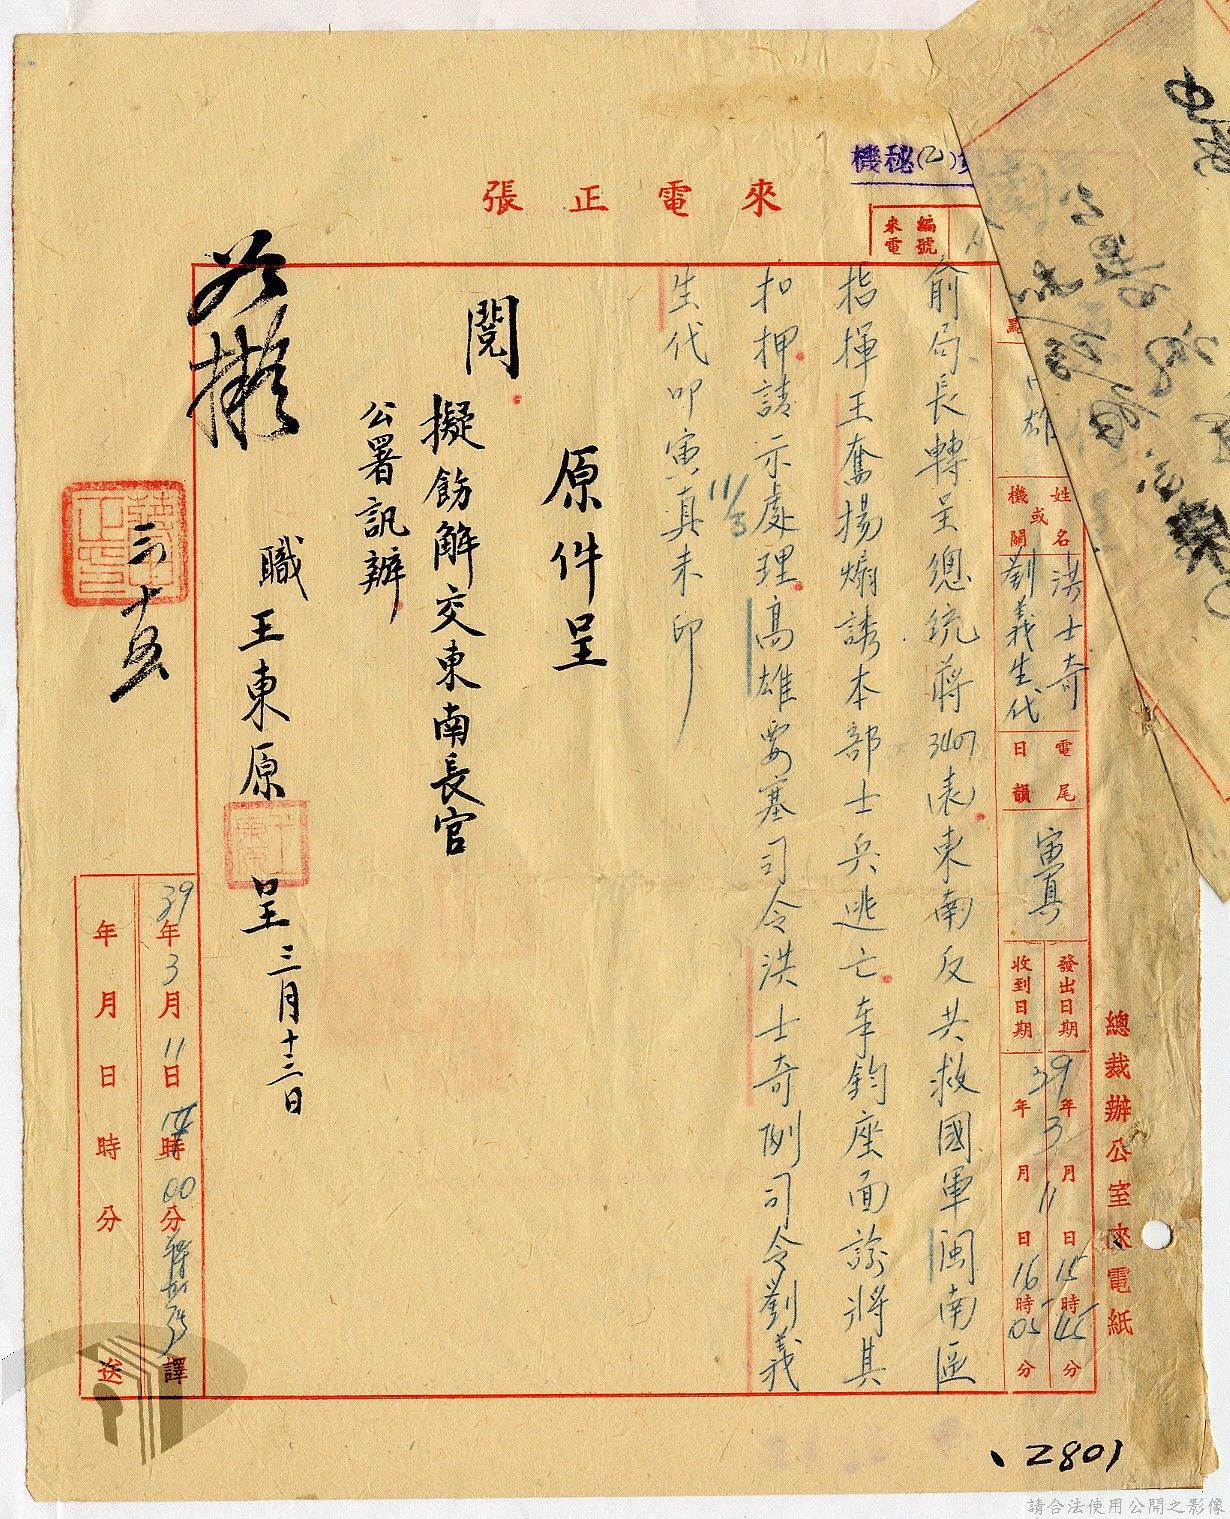 機秘(乙)
來電正張
編號
來電
總裁辦公室來電紙
姓名
或
機關
洪士奇
劉義生代
電尾
日韻
寅真
發出日期
39年3月11日15時45分
收到日期
年月日16時05分
俞局長轉呈總統蔣3407表東南反共救國軍閩南區
指揮王奮揚煽誘本部士兵逃亡奉鈞座面諭將其
扣押請示處理高雄要塞司令洪士奇副司令劉義
生代叩寅真未印
11/3
原件呈
閱
擬飭解交東南長官
公署訊辦
職王東原呈三月十三日
如擬
三十五
39年3月11日時00分譯
年月日時分送
2801
請合法使用公開之影像